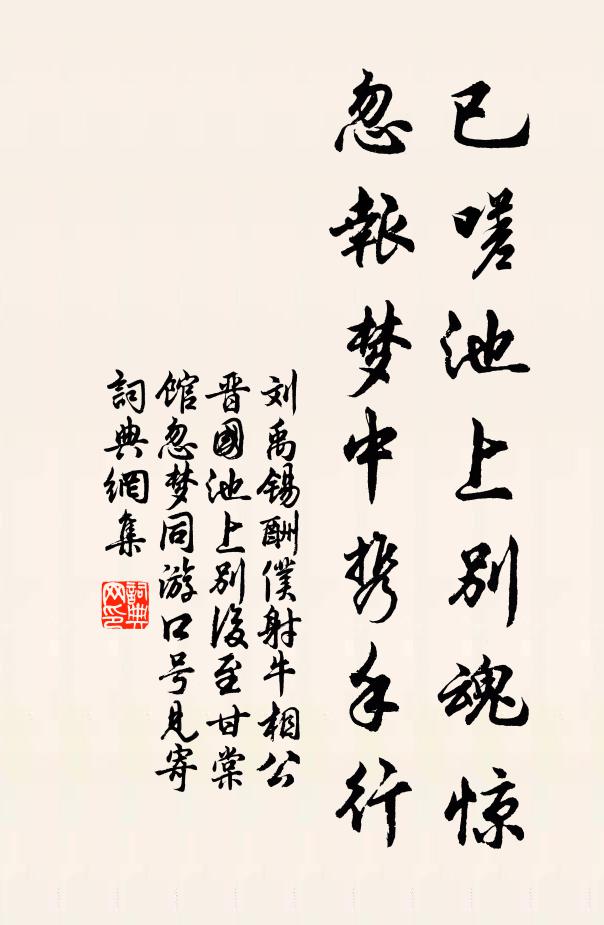 已嗟池上别魂惊
忽報梦中携手行
刘禹锡酬僕射牛相公
晋國池上别後至甘棠
馆忽梦同游口号见寄
詞典網集
詞典网印